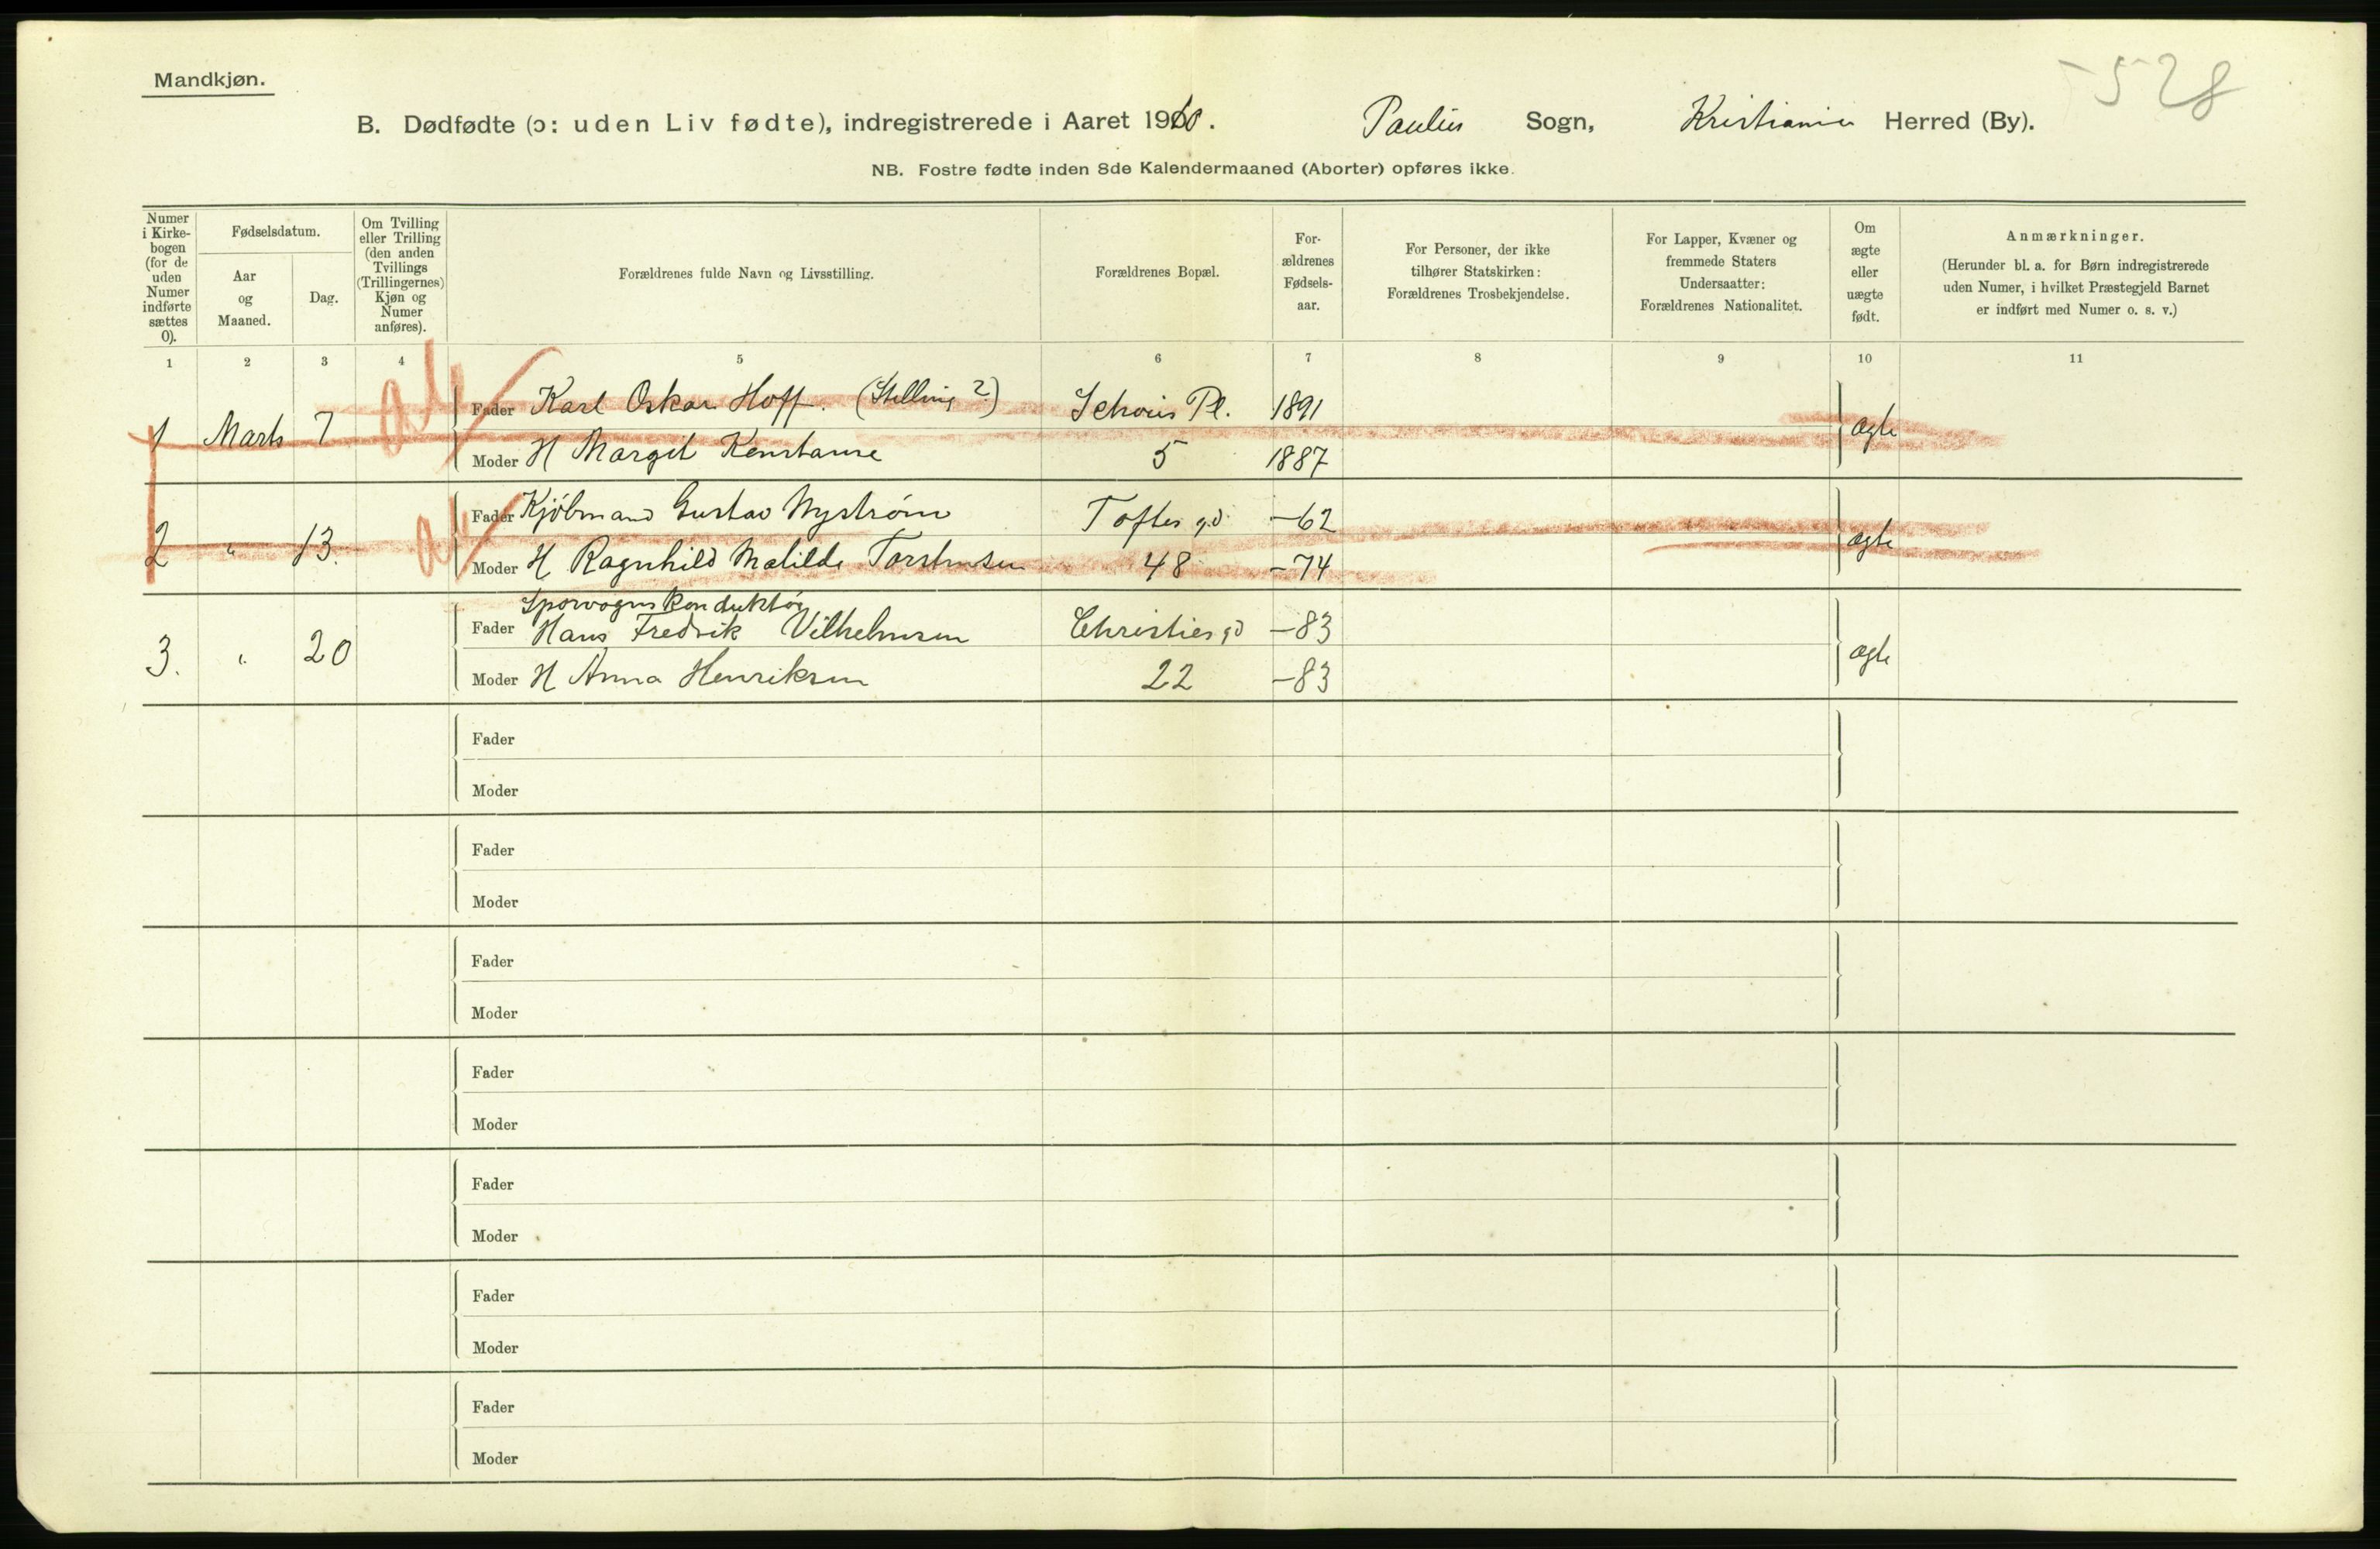 528
Mandkjøn.
B. Dødfødte (ɔ: uden Liv fødte), indregistrerede i Aaret 1910. Paulus Sogn, Kristiania Herred (By).
NB. Fostre fødte inden 8de Kalendermaaned (Aborter) opføres ikke.
Numer i Kirke-bogen (for de uden Numer indførte sættes 0).
Fødselsdatum.
Aar og Maaned.
Dag.
Om Tvilling eller Trilling (den anden Tvillings (Trillingernes) Kjøn og Numer anføres).
Forældrenes fulde Navn og Livsstilling.
Forældrenes Bopæl.
For-ældrenes Fødsels-aar.
For Personer, der ikke tilhører Statskirken: Forældrenes Trosbekjendelse.
For Lapper, Kvæner og fremmede Staters Undersaatter: Forældrenes Nationalitet.
Om ægte eller uægte født.
Anmærkninger.
(Herunder bl. a. for Børn indregistrerede uden Numer, i hvilket Præstegjeld Barnet er indført med Numer o. s. v.)
1 2 3 4 5 6 7 8 9 10 11
Fader Karl Oskar Hoff. (Stilling?) Schous Pl. 1891
1 Marts 7 ægte
Moder H Margit Konstanse 5 1887
Fader Kjøbmand Gustav Nystrøm Toftes gd -62
2 " 13. ægte
Moder H Ragnhild Matilde Torstensen 48 -74
Sporvognskonduktør
Fader Hans Fredrik Vilhelmsen Christies gd -83
3. " 20 ægte
Moder H Anna Henriksen 22 -83
Fader
Moder
Fader
Moder
Fader
Moder
Fader
Moder
Fader
Moder
Fader
Moder
Fader
Moder